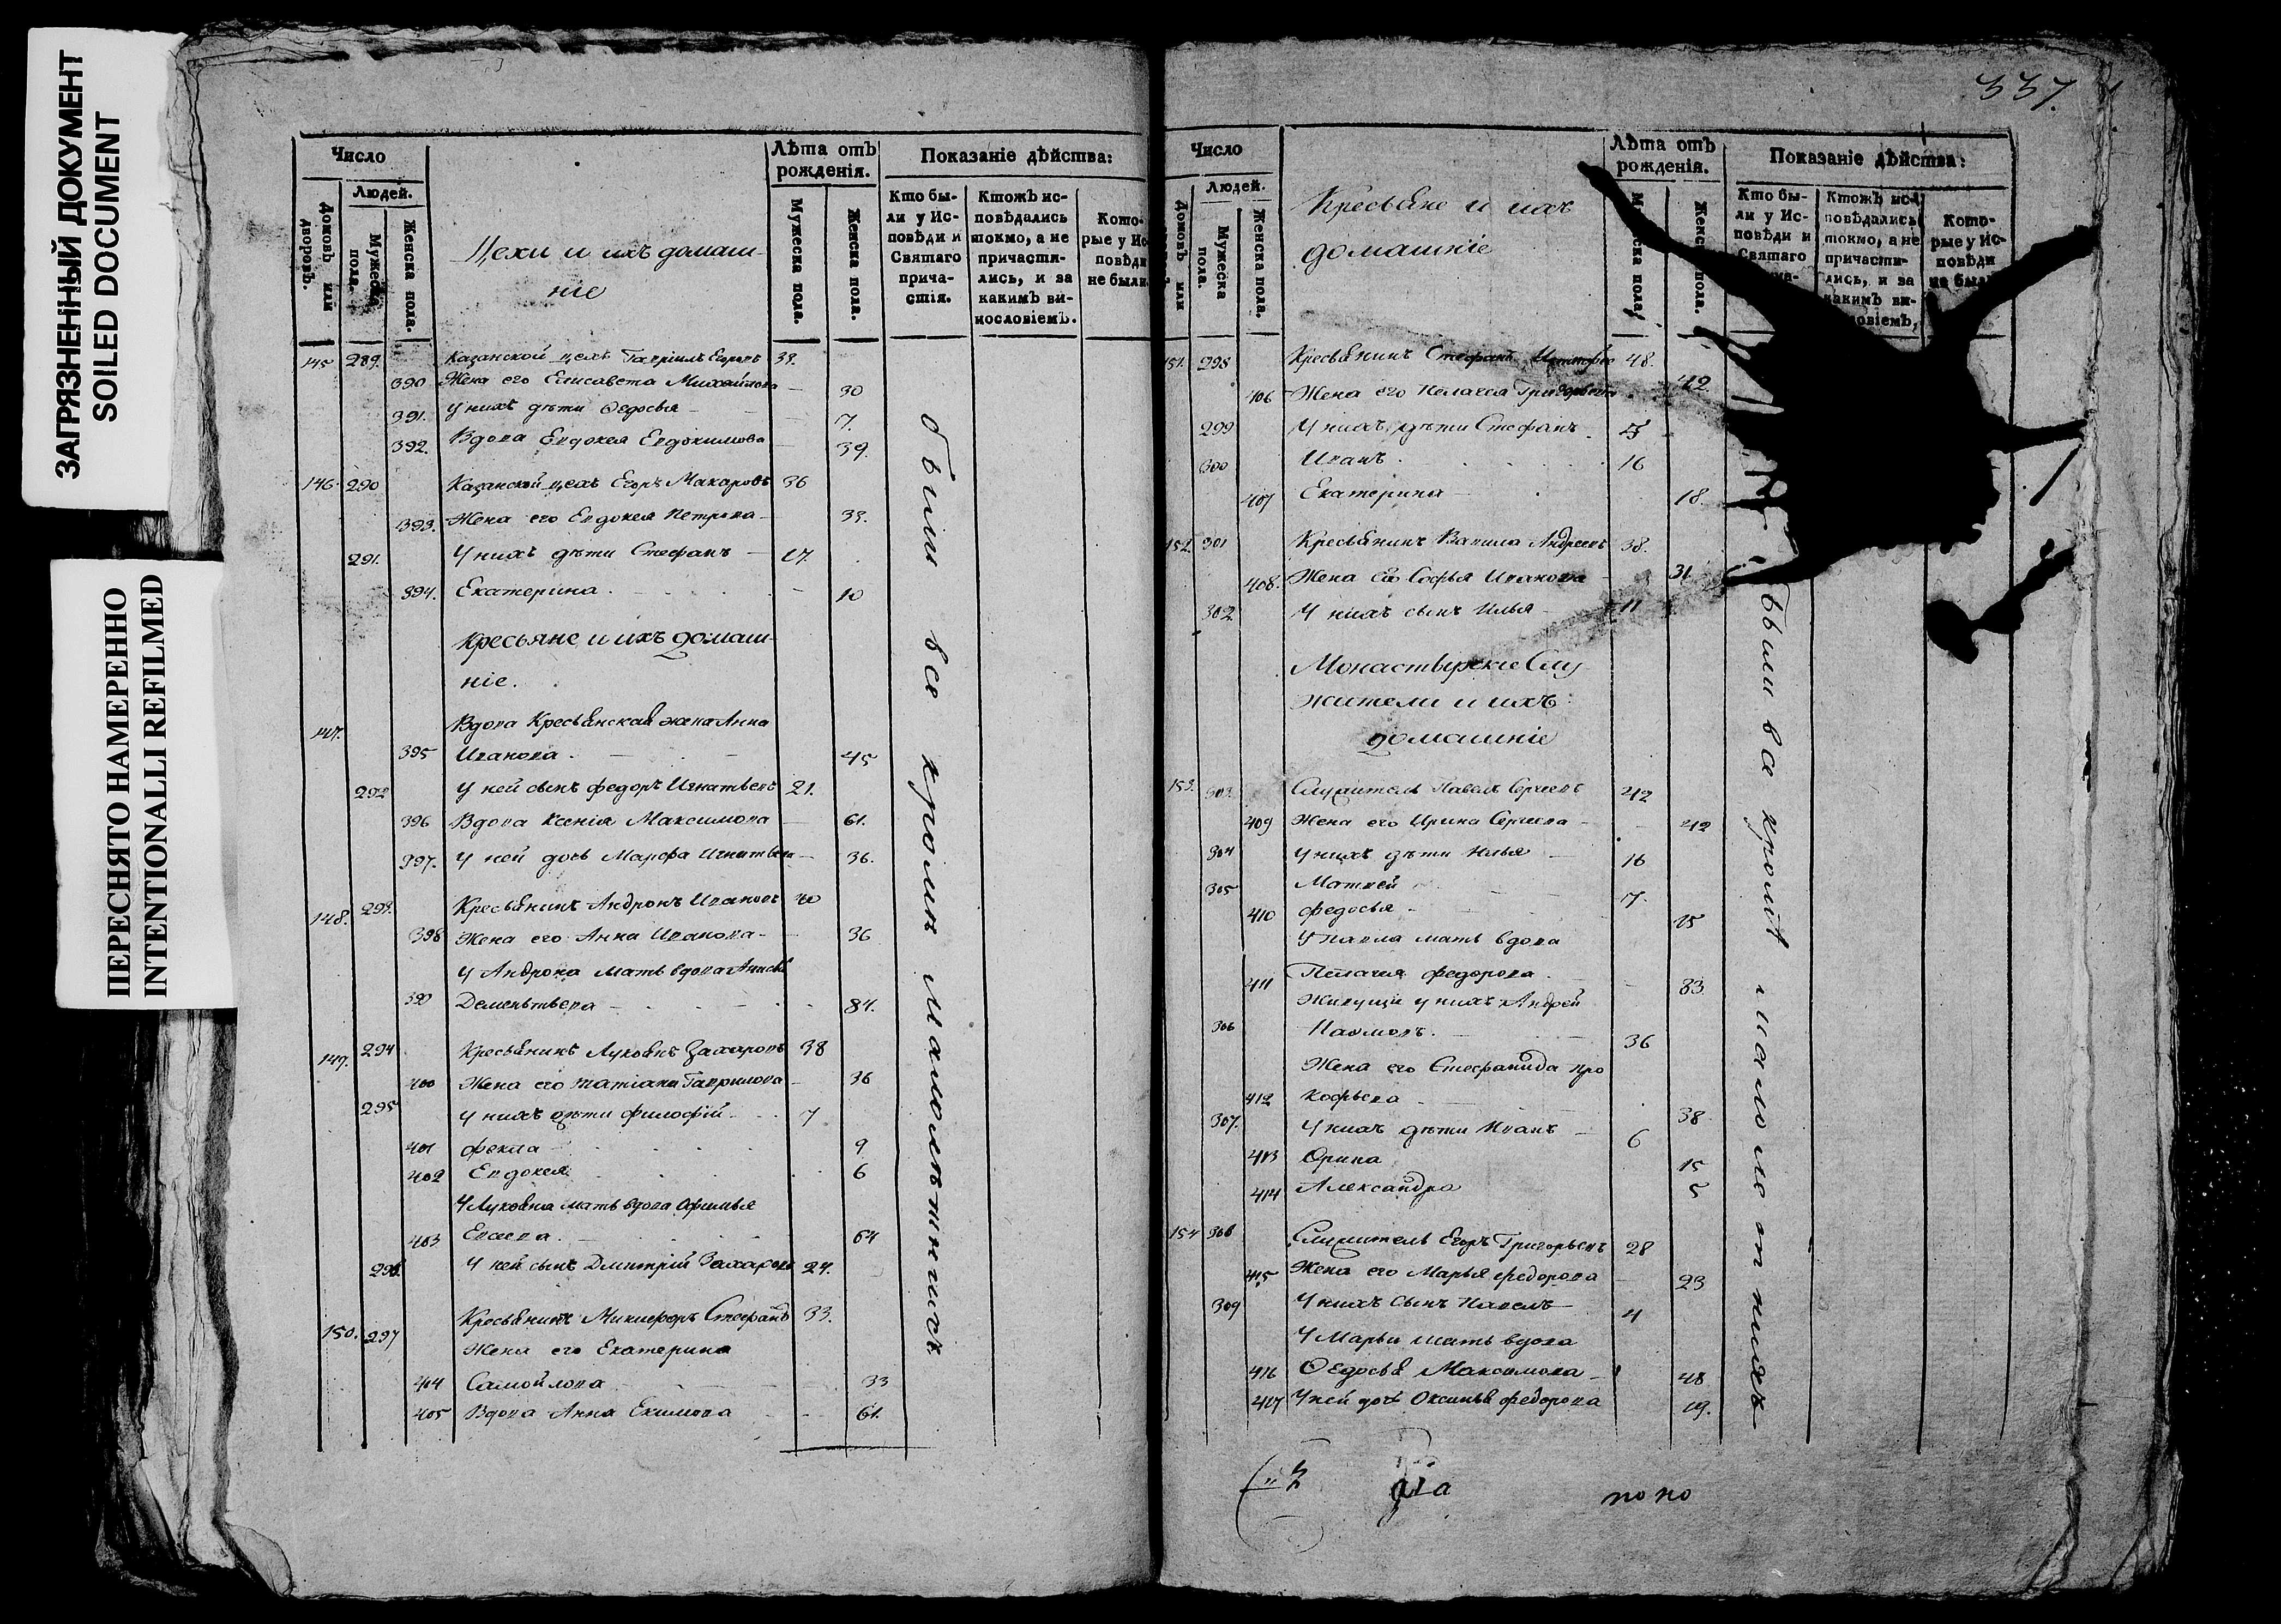 ЗАГРЯЗНЕННЫЙ ДОКУМЕНТ
SOILED DOCUMENT
ПЕРЕСНЯТО НАМЕРЕННО
INTENTIONALLI REFILMED
Число
Людей.
Домовъ или дворовъ.
Мужеска пола.
Женска пола.
Цехи и ихъ домаш-
ніе
Лѣта отъ рожденія.
Мужеска пола.
Женска пола.
Показаніе дѣйства:
Кто бы-
ли у Ис-
повѣди и
Святаго
прича-
стія.
Ктожъ ис-
повѣдались
токмо, а не
причасти-
лись, и за
какимъ ви-
нословіемъ.
Кото-
рые у Ис
повѣди
не были
145 289. Казанской цехъ Гаврилъ Егоровъ 33.
390 Жена его Елисавета Михайлова 30
391. У нихъ дѣти Ѳедосья 7.
392. Вдова Евдокея Евдокимова 39.
146. 290 Казанской цехъ Егоръ Макаровъ 36
393. Жена его Евдокея Петрова 33.
291. У нихъ дѣти Стефанъ 17.
394. Екатерина 10
Кресьяне и ихъ домаш-
ніе.
147. Вдова Кресьянская жена Анна
395 Иванова 45
292 У ней сынъ Федоръ Игнатьевъ 21.
396 Вдова Ксенія Максимова 61.
397. У ней дочь Марфа Игнатьева 36.
148. 293. Кресьянинъ Андронъ Ивановъ 40
398 Жена его Анна Иванова 36
У Андрона мать вдова
399 Дементьева 84.
149. 294 Кресьянинъ Лукоянъ Захаровъ 38
400 Жена его Татіана Гаврилова 36
295 У нихъ дѣти Филофій 7
401 Фекла 9
402 Евдокея 6
У Лукояна мать вдова Офимья
403 Евсеева 64
296. У ней сынъ Дмитрій Захаровъ 24.
150. 297 Кресьянинъ Микифоръ Стефановъ 33.
Жена его Екатерина
404 Самойлова 33
405 Вдова Анна Екимова 61.
были все кромѣ малолѣтнихъ
337.
Число
Людей.
Домовъ или
Мужеска пола.
Женска пола.
Кресьяне и ихъ
домашніе
Лѣта отъ рожденія.
Показаніе дѣйства:
Кто бы-
ли у Ис-
повѣди и
Святаго
Ктожъ ис-
повѣдались
токмо, а не
причасти-
лись, и за
какимъ ви-
Кото-
рые у Ис-
повѣди
не были
151. 298 Кресьянинъ Стефанъ 48.
406 Жена его Пелагея Григорьева 42.
299 У нихъ дѣти Стефанъ
300 Иванъ 16
407 Екатерина 18
152. 301 Кресьянинъ Вавила Андреевъ 38.
408. Жена его Софья Иванова 31
302 У нихъ сынъ Илья 11
Монастырскіе Слу
жители и ихъ
домашніе
153. 303. Служитель Павелъ Сергеевъ 42
409 Жена его Ирина Сергеева 42
304 У нихъ дѣти Илья 16
305 Матвей 7.
410 Федосья 15
У Павла мать вдова
411 Пелагея Федорова 83.
Живущіе у нихъ Андрей
306 Пахомовъ 36
Жена его Стефанида Про
412 кофьева 38
307. У нихъ дѣти Иванъ 6
413 Орина 15
414 Александра 5
154 308 Служитель Егоръ Григорьевъ 28
415 Жена его Марья Федорова 23
309 У нихъ сынъ Павелъ 4
У Марьи мать вдова
416 Ѳедосья Максимова 48
417 У ней дочь Оксинья Федорова 19.
были все кромѣ малолетнихъ
попо